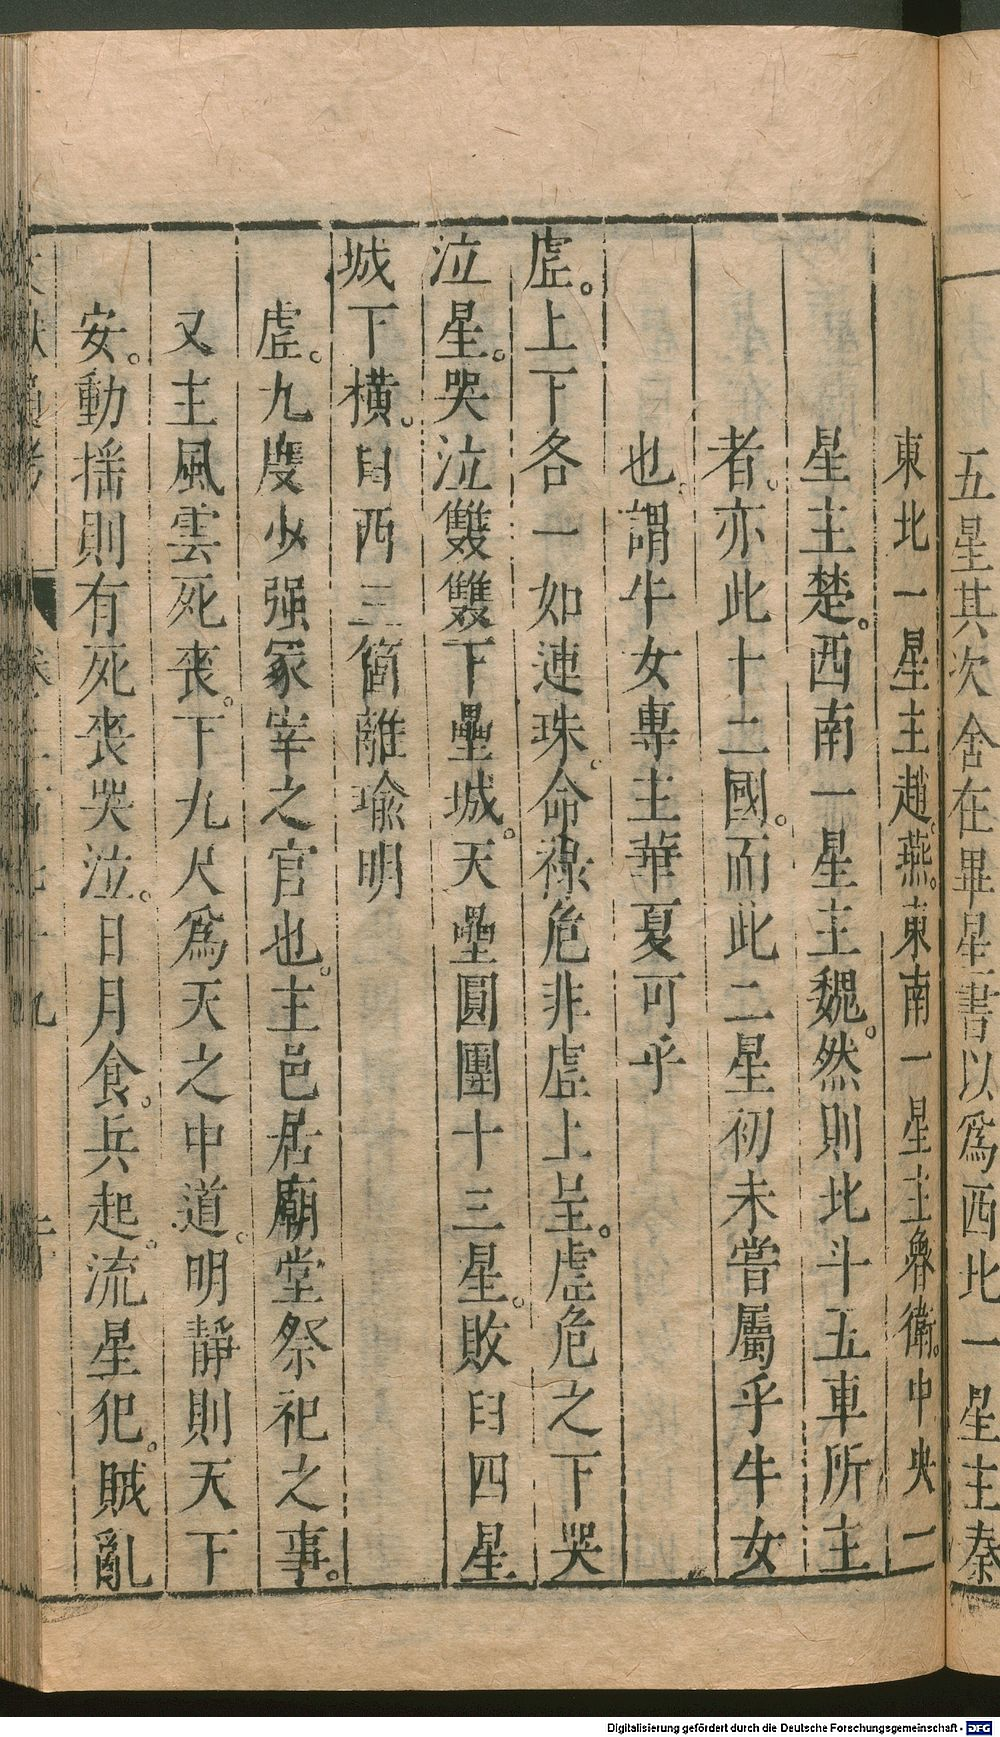 五星其次舍在畢星一書以爲西北一星主秦
東北一星主趙燕。東南一星主魯衛。中央一
星主楚。西南一星主魏。然則北斗五車所主
者。亦此十二國。而此二星初未嘗屬乎牛女
也。謂牛女專主華夏可乎
虛。上下各一如連珠。命祿危非虛上呈。虛危之下哭
泣星。哭泣雙雙下壘城。天壘圓團十三星。敗臼四星
城下橫。臼西三箇離瑜明
虛。九度少强冢宰之官也。主邑居廟堂祭祀之事。
又主風雲死喪。下九尺爲天之中道。明靜則天下
安。動揺則有死喪哭泣。日月食。兵起。流星犯。賊亂
Digitalisierung gefördert durch die Deutsche Forschungsgemeinschaft - DFG